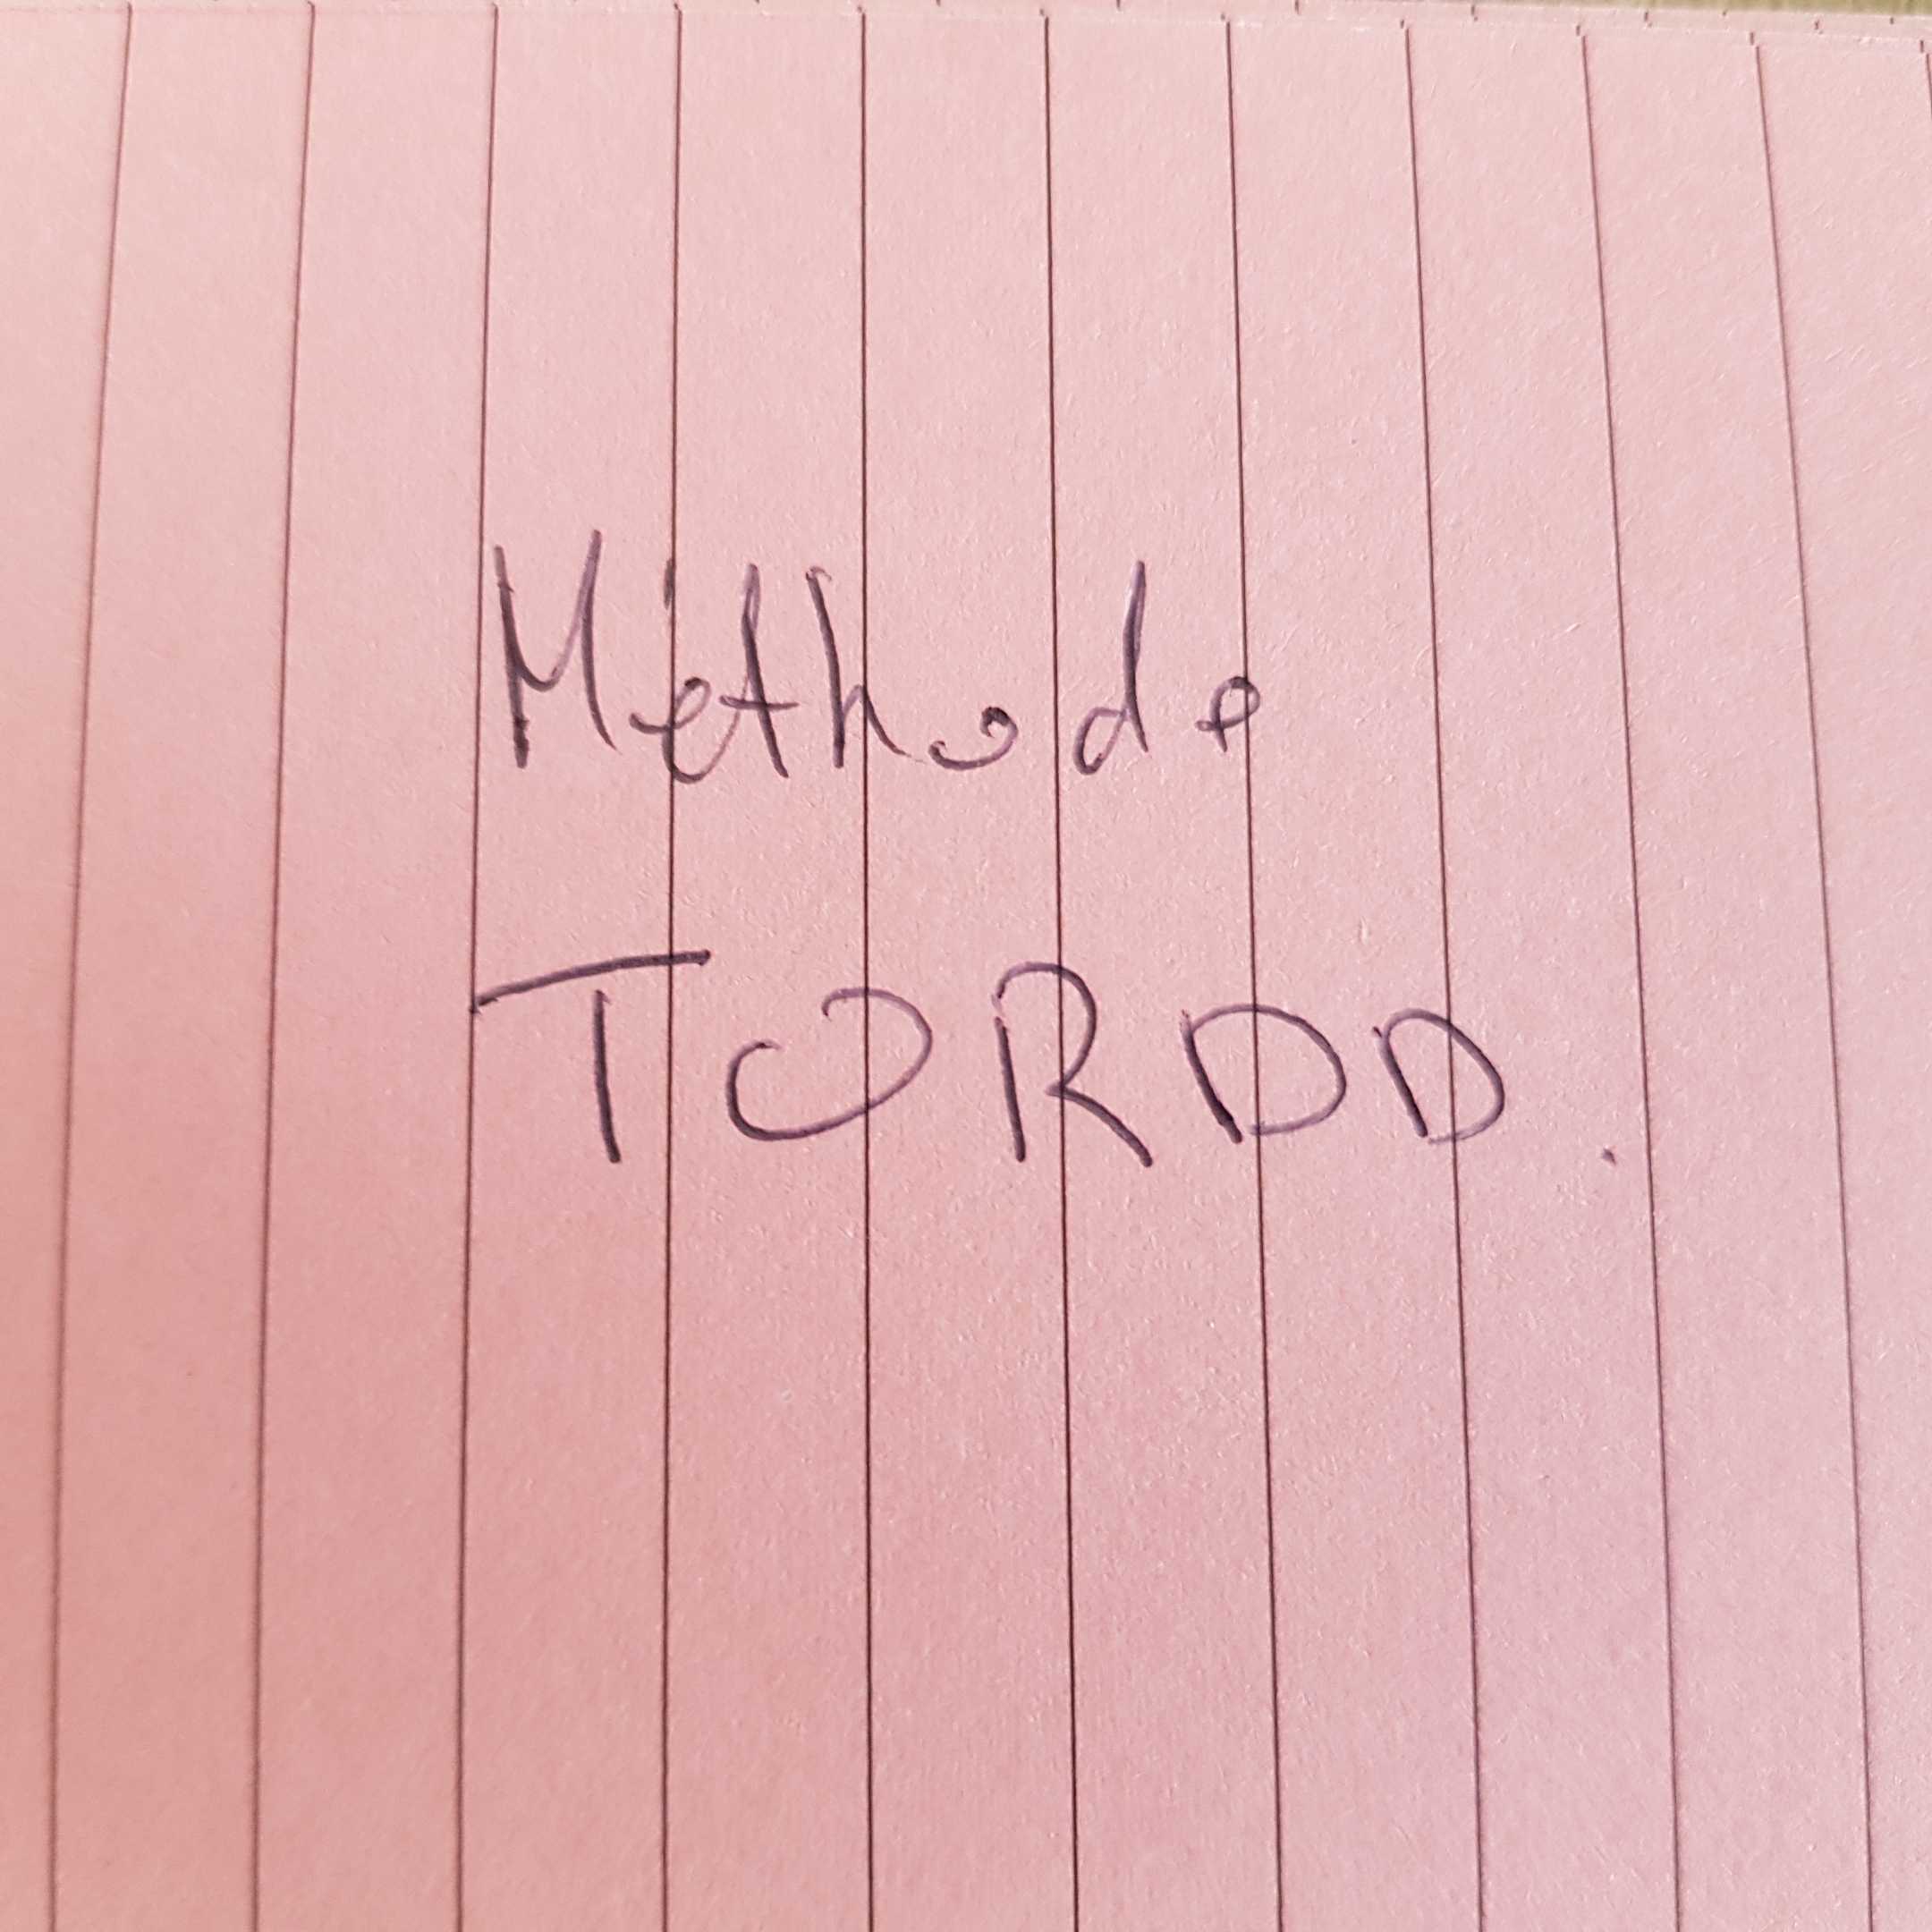 Méthode
TORDD.